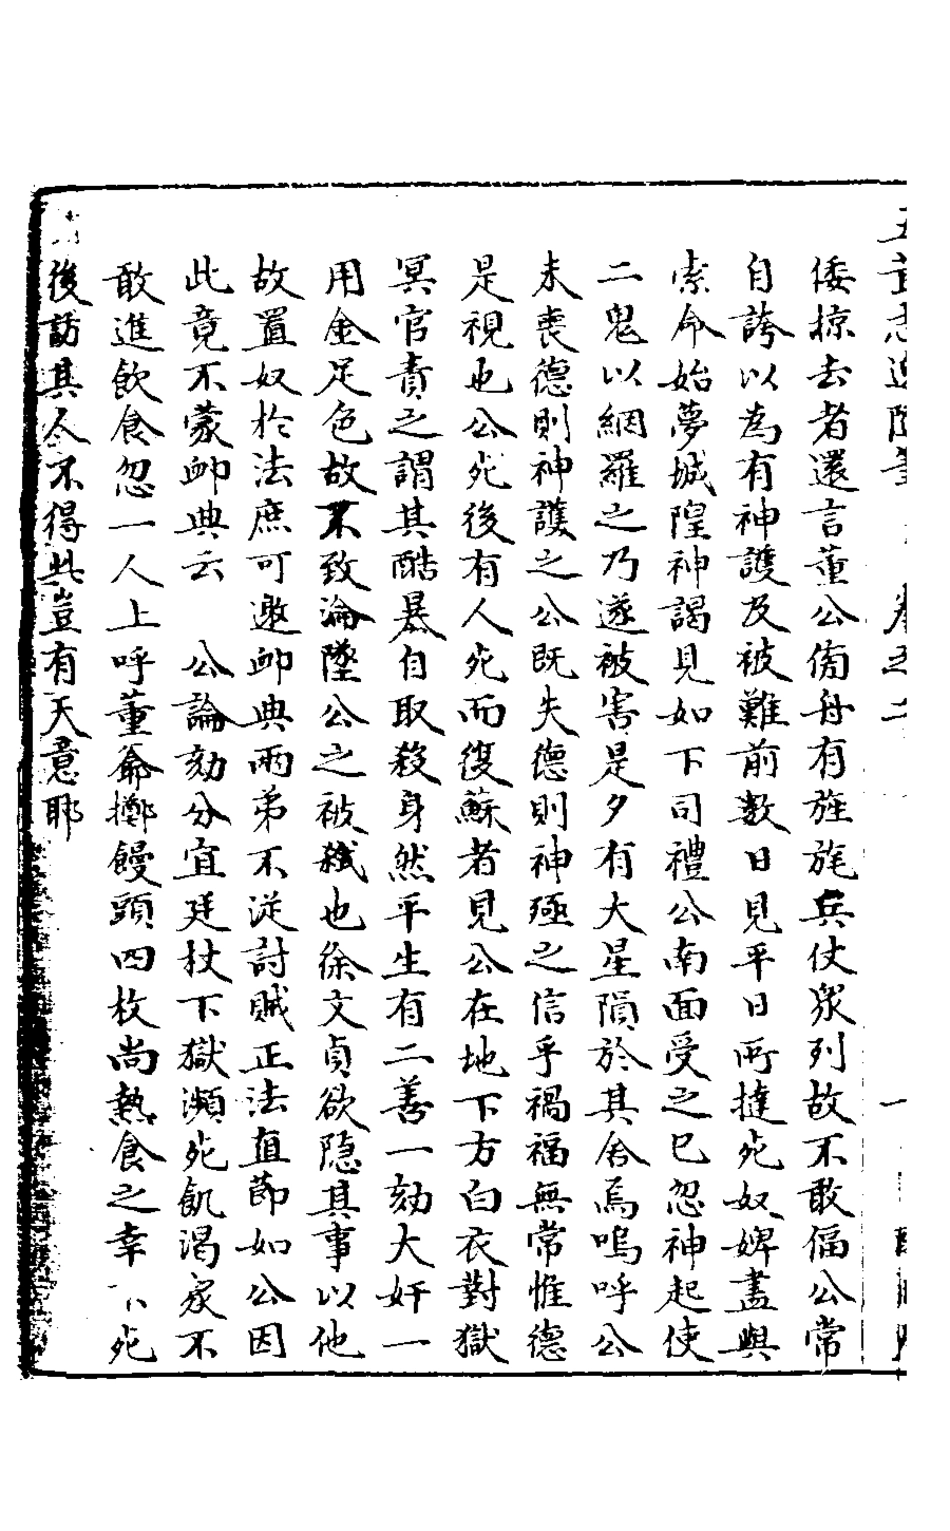 五茸志逸隨筆 卷之二 一
倭掠去者還言董公傍舟有旌旄兵仗眾列故不敢偪公常
自誇以為有神護及被難前數日見平日所撻死奴婢盡與
索命始夢城隍神謁見如下司禮公南面受之已忽神起使
二鬼以網羅之乃遂被害是夕有大星隕於其舍焉嗚呼公
未喪德則神護之公既失德則神殛之信乎禍福無常惟德
是視也公死後有人死而復蘇者見公在地下方白衣對獄
冥官責之謂其酷暴自取殺身然平生有二善一劾大奸一
用金足色故不致淪墜公之被戕也徐文貞欲隐其事以他
故置奴於法庶可邀卹典兩弟不從討賊正法直節如公因
此竟不蒙卹典云 公論劾分宜廷杖下獄瀕死飢渴家不
敢進飲食忽一人上呼董爺擲饅頭四枚尚熱食之幸 死
後訪其人不得此豈有天意耶